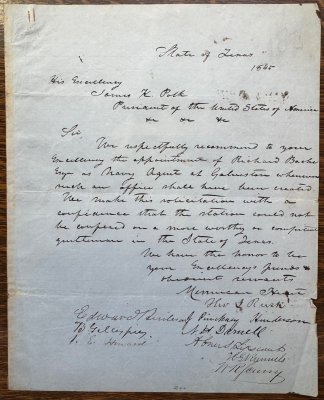 State of Texas
1845
His Excellency
James K Polk
President of the United States of America
Sir
We respectfully recommend to your
Excellency the appointment of Richard Bache
Esqr as Navy Agent at Galveston whenever
such an office shall have been created
We make this solicitation with a
confidence that the station could not
be confered on a more worthy or competent
gentleman in the State of Texas.
We have the honor to be
your Excellency's friends &
obedient servants
Hunt
Tho J Rusk
J Pinckney Henderson
N H Darnell
Abner S Lipscomb